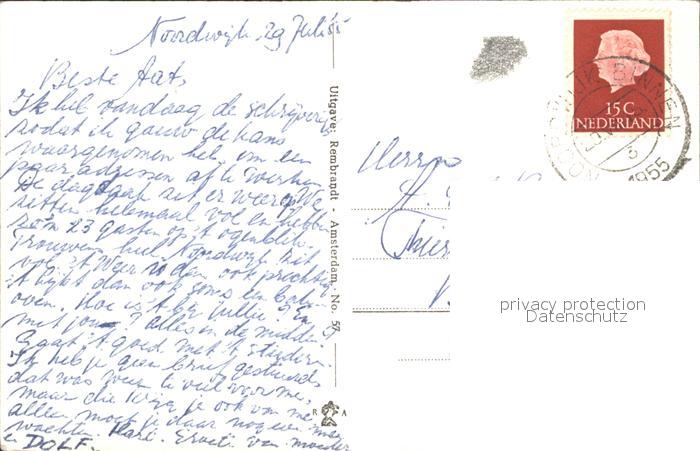 Noordwijk 29 Juli 55
Beste Aat,
Ik heb vandaag de schrijverij
zodat ik gauw de kans
waargenomen heb om een
paar adressen af te werken
De dag zit er weer op. We
zitten helemaal vol en hebben
zo'n 23 gasten op 't ogenblik.
Trouwens heel Noordwijk zit
vol. 't Weer is dan ook prachtig
't lijkt dan ook soms een
oven. Hoe is 't bij jullie en
met jou? alles in de
Gaat 't goed met 't
Ik heb je geen brief gestuurd
dat was weer te veel voor me,
maar die krijg je ook van me
alleen moet je daar nog even mee
wachten. Hart. Groeten van moeder
en DOLF.
Uitgave: Rembrandt - Amsterdam. No. 57
R A
15 C
NEDERLAND
NOORDWIJK BINNEN
1955
3
privacy protection
Datenschutz